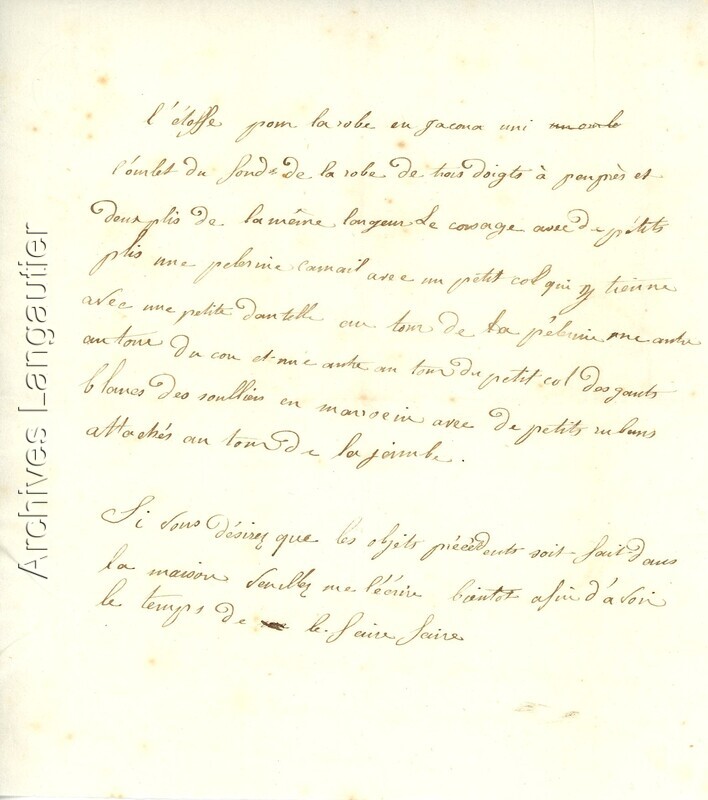 l'étoffe pour la robe en Jacona uni
l'ourlet du fond de la robe de trois doigts à peuprès et
deux plis de la même largeur Le corsage avec de pétits
plis une pelerine camail avec un petit col qui y tienne
avec une petite dantelle au tour de la pélerine une autre
au tour du cou et une autre au tour du petit col des gants
blancs des soulliers en maroccin avec de petits rubans
attachés au tour de la jambe.
Si vous désirez que les objets précédents soit fait dans
la maison veuillez me l'écrire bientot afin d'avoir
le temps de le faire faire
Archives Langautier